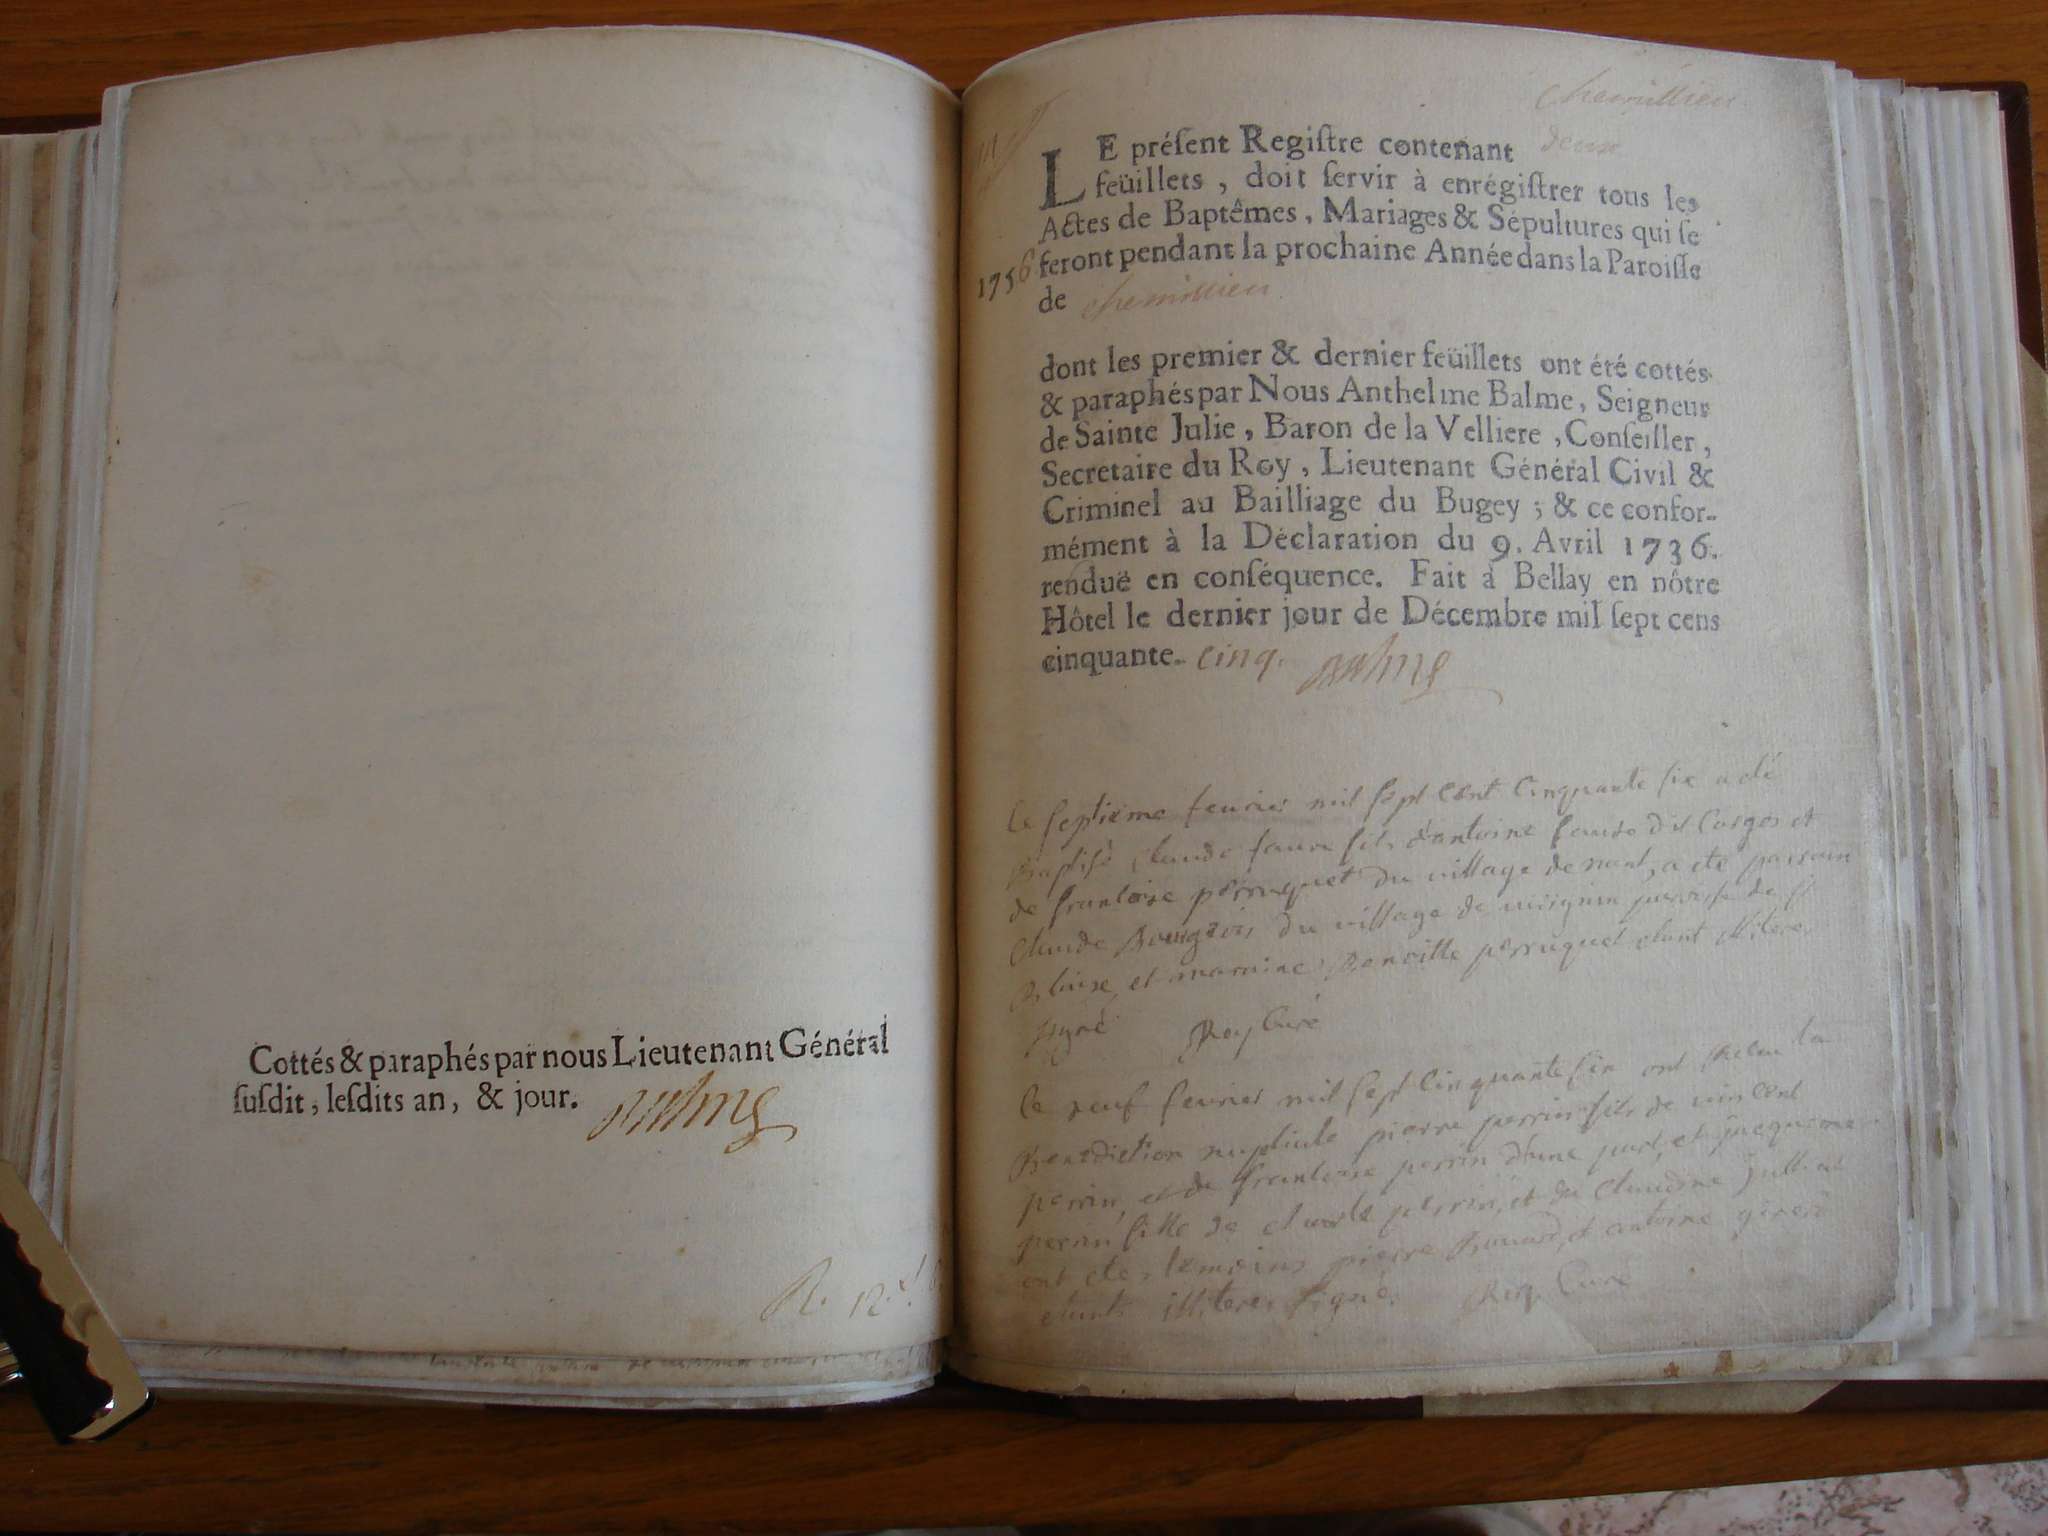 Cottés & paraphés par nous Lieutenant Général
ſuſdit, leſdits an, & jour. Balme
R. 12.
chemillieu
LE préſent Regiſtre contenant deux
feüillets, doit ſervir à enrégiſtrer tous les
Actes de Baptêmes, Mariages & Sépultures qui ſe
1756 feront pendant la prochaine Année dans la Paroiſſe
de chemillieu
dont les premier & dernier feüillets ont été cottés
& paraphés par Nous Anthelme Balme, Seigneur
de Sainte Julie, Baron de la Velliere, Conſeiller,
Secretaire du Roy, Lieutenant Général Civil &
Criminel au Bailliage du Bugey ; & ce confor-
mément à la Déclaration du 9. Avril 1736.
renduë en conſéquence. Fait à Bellay en nôtre
Hôtel le dernier jour de Décembre mil ſept cens
cinquante. cinq. Balme
le ſeptieme fevrier mil ſept cent cinquante ſix a eté
Baptisé claude faure fils d'antoine faure dit et
de francoise perruquet du village de nant, a eté parrain
claude Bourgeois du village de paroisse de St
Blaise et maraine Benoitte perruquet etant illiteres
signé Rey Curé
le neuf fevrier mil ſept cinquante ſix ont la
Benediction nuptiale pierre perrin fils de vincent
perrin, et de francoise perrin d'une part, et jacqueme
perrin fille de perrin, et de claudine
ont eté temoins pierre et antoine
etants illiteres signé. Rey Curé